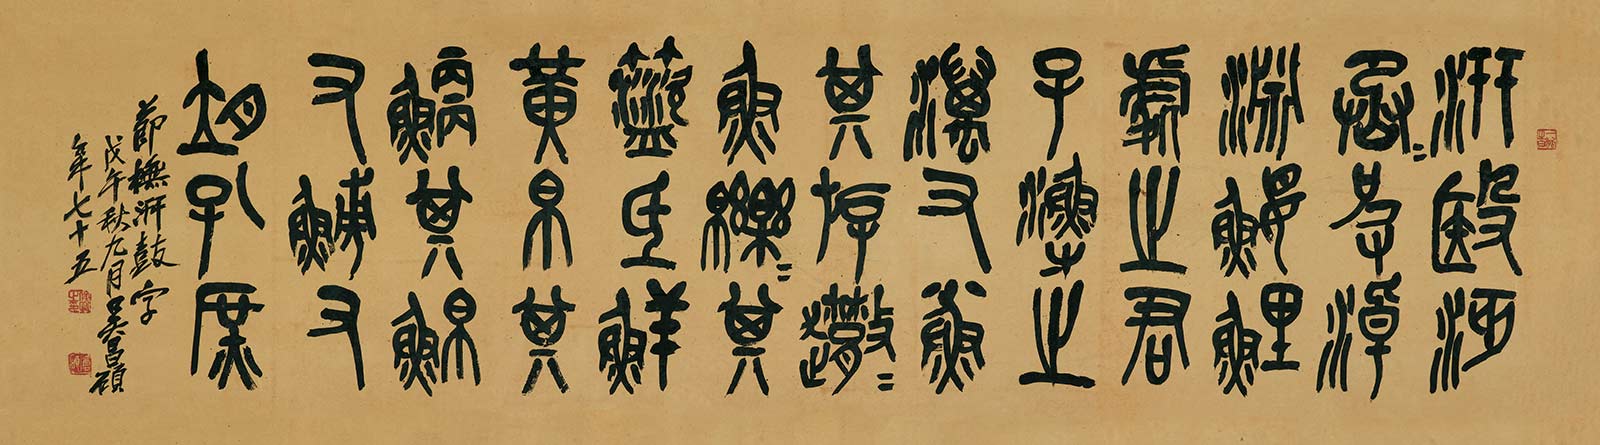 汧殹沔
丞=皮淖
淵鰋鯉
處之君
子漁之
澫又小魚
其斿趣=
魚皪=其
籃氐鮮
黃帛其
鯾其鮊
又鯆又
孔庶
節橅汧鼓字
戊午秋九月吳昌碩
年七十五